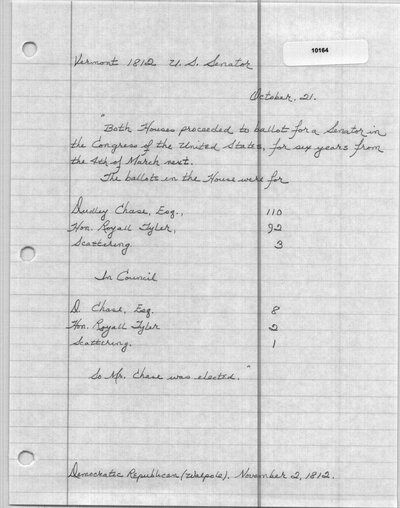 10164
Vermont 1812 U. S. Senator
October, 21.
"Both Houses proceeded to ballot for a Senator in
the Congress of the United States, for six years from
the 4th of March next.
The ballots in the House were for
Dudley Chase, Esq., 110
Hon. Royall Tyler, 92
Scattering 3
In Council
D. Chase, Esq. 8
Hon. Royall Tyler 2
Scattering. 1
So Mr. Chase was elected."
Democratic Republican (Walpole). November 2, 1812.